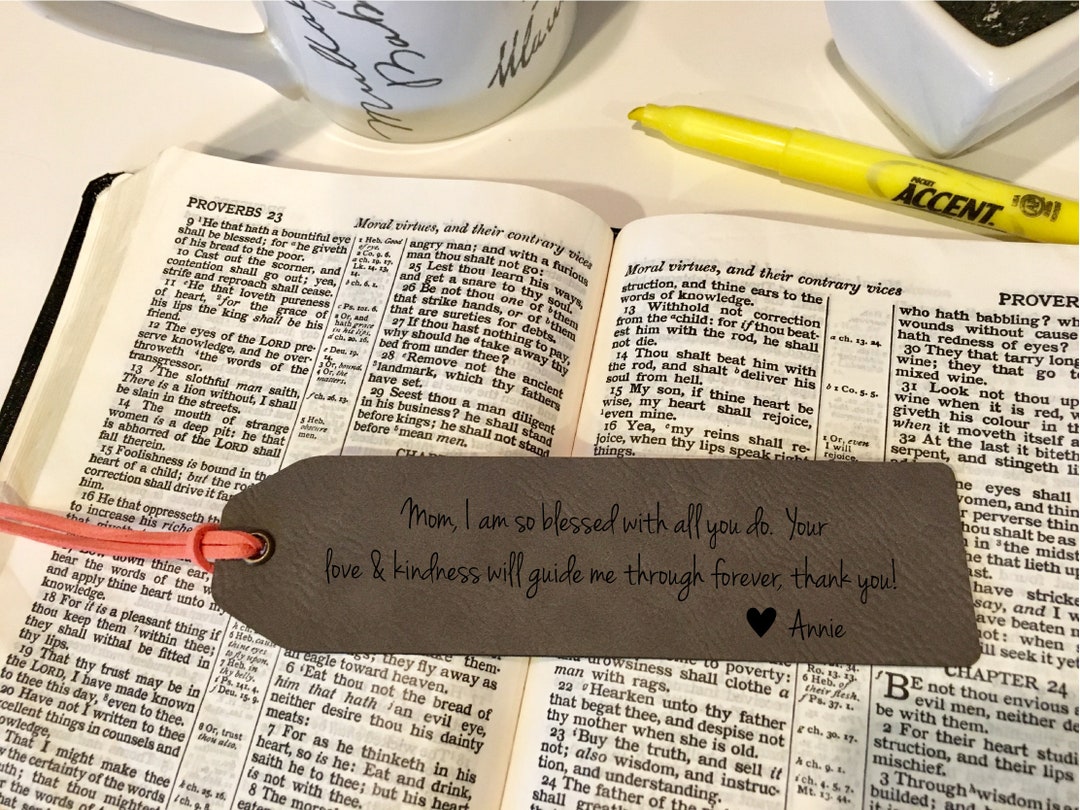 PROVERBS 23
Moral virtues, and their contrary vices
9 ¹He that hath a bountiful eye
shall be blessed; for he giveth
of his bread to the poor.
10 Cast out the scorner, and
contention shall go out; yea,
strife and reproach shall cease.
11 He that loveth pureness
of heart, for the grace of
his lips the king shall be his
friend.
12 The eyes of the LORD pre-
serve knowledge, and he over-
throweth the words of the
transgressor.
13 The slothful man saith,
There is a lion without, I shall
be slain in the streets.
14 The mouth of strange
women is a deep pit: he that
is abhorred of the LORD shall
fall therein.
15 Foolishness is bound in the
heart of a child; but the ro
correction shall drive it fa
him.
16 He that oppresseth th
to increase his riche
that giveth
Bow down thine ear,
hear the words of the w
and apply thine heart unto m
knowledge.
18 For it is a pleasant thing if
thou keep them within thee;
they shall withal be fitted in
thy lips.
19 That thy trust may be in
the LORD, I have made known
to thee this day, even to thee.
20 Have not I written to thee
cellent things in counsels and
owledge,
That I might make thee
the certainty of the words
uth; that thou mightest
1 Heb. Good
of eye.
2 Co. 9. 6.
a ch. 19. 17.
Lk. 14. 13,
14.
b ch. 6. 1.
c Ps. 101. 6.
2 Or, and
hath grace
in his lips.
d ch. 20. 16.
e Deu. 19.
14.
3 Or, bound.
4 Or, the
matters.
f ch. 26. 13.
5 Heb.
obscure
men.
6 Heb. cause
thine eyes
to fly upon.
7 Heb. in
thy belly.
8 Or, trust
thou also.
angry man; and with a furious
man thou shalt not go:
25 Lest thou learn his ways,
and get a snare to thy soul.
26 Be not thou one of them
that strike hands, or of them
that are sureties for debts.
27 If thou hast nothing to pay,
why should he take away thy
bed from under thee?
28 Remove not the ancient
landmark, which thy fathers
have set.
29 Seest thou a man diligent
in his business? he shall stand
before kings; he shall not stand
before mean men.
an eagle toward heaven.
6 Eat thou not the bread of
him that hath an evil eye,
neither desire thou his dainty
meats:
7 For as he thinketh in his
heart, so is he: Eat and drink,
saith he to thee; but his heart
is not with thee.
8 The morsel
Moral virtues, and their contrary vices
PROVER
struction, and thine ears to the
words of knowledge.
13 Withhold not correction
from the child: for if thou beat-
est him with the rod, he shall
not die.
14 Thou shalt beat him with
the rod, and shalt deliver his
soul from hell.
15 My son, if thine heart be
wise, my heart shall rejoice,
even mine.
16 Yea, my reins shall re-
joice, when thy lips speak right
things.
and drowsiness shall clothe a
man with rags.
22 Hearken unto thy father
that begat thee, and despise not
thy mother when she is old.
23 Buy the truth, and sell it
not; also wisdom, and instruc-
tion, and understanding.
24 The father of the
a ch. 13. 24.
b 1 Co. 5. 5.
1 Or, even
I will
rejoice.
Ro. 13. 13.
6 Heb. of
their flesh.
f Ps. 37. 1.
g ch. 30. 17.
h ch. 9. 1.
who hath babbling? wh
wounds without cause
hath redness of eyes?
30 They that tarry long
wine; they that go to
mixed wine.
31 Look not thou up
wine when it is red, w
giveth his colour in th
when it moveth itself a
32 At the last it biteth
serpent, and stingeth li
CHAPTER 24
BE not thou envious a
evil men, neither de
be with them.
2 For their heart studi
struction, and their lips
mischief.
3 Through wisdom is a
builded; an
Mom, I am so blessed with all you do. Your
love & kindness will guide me through forever, thank you!
♥ Annie
POCKET
ACCENT